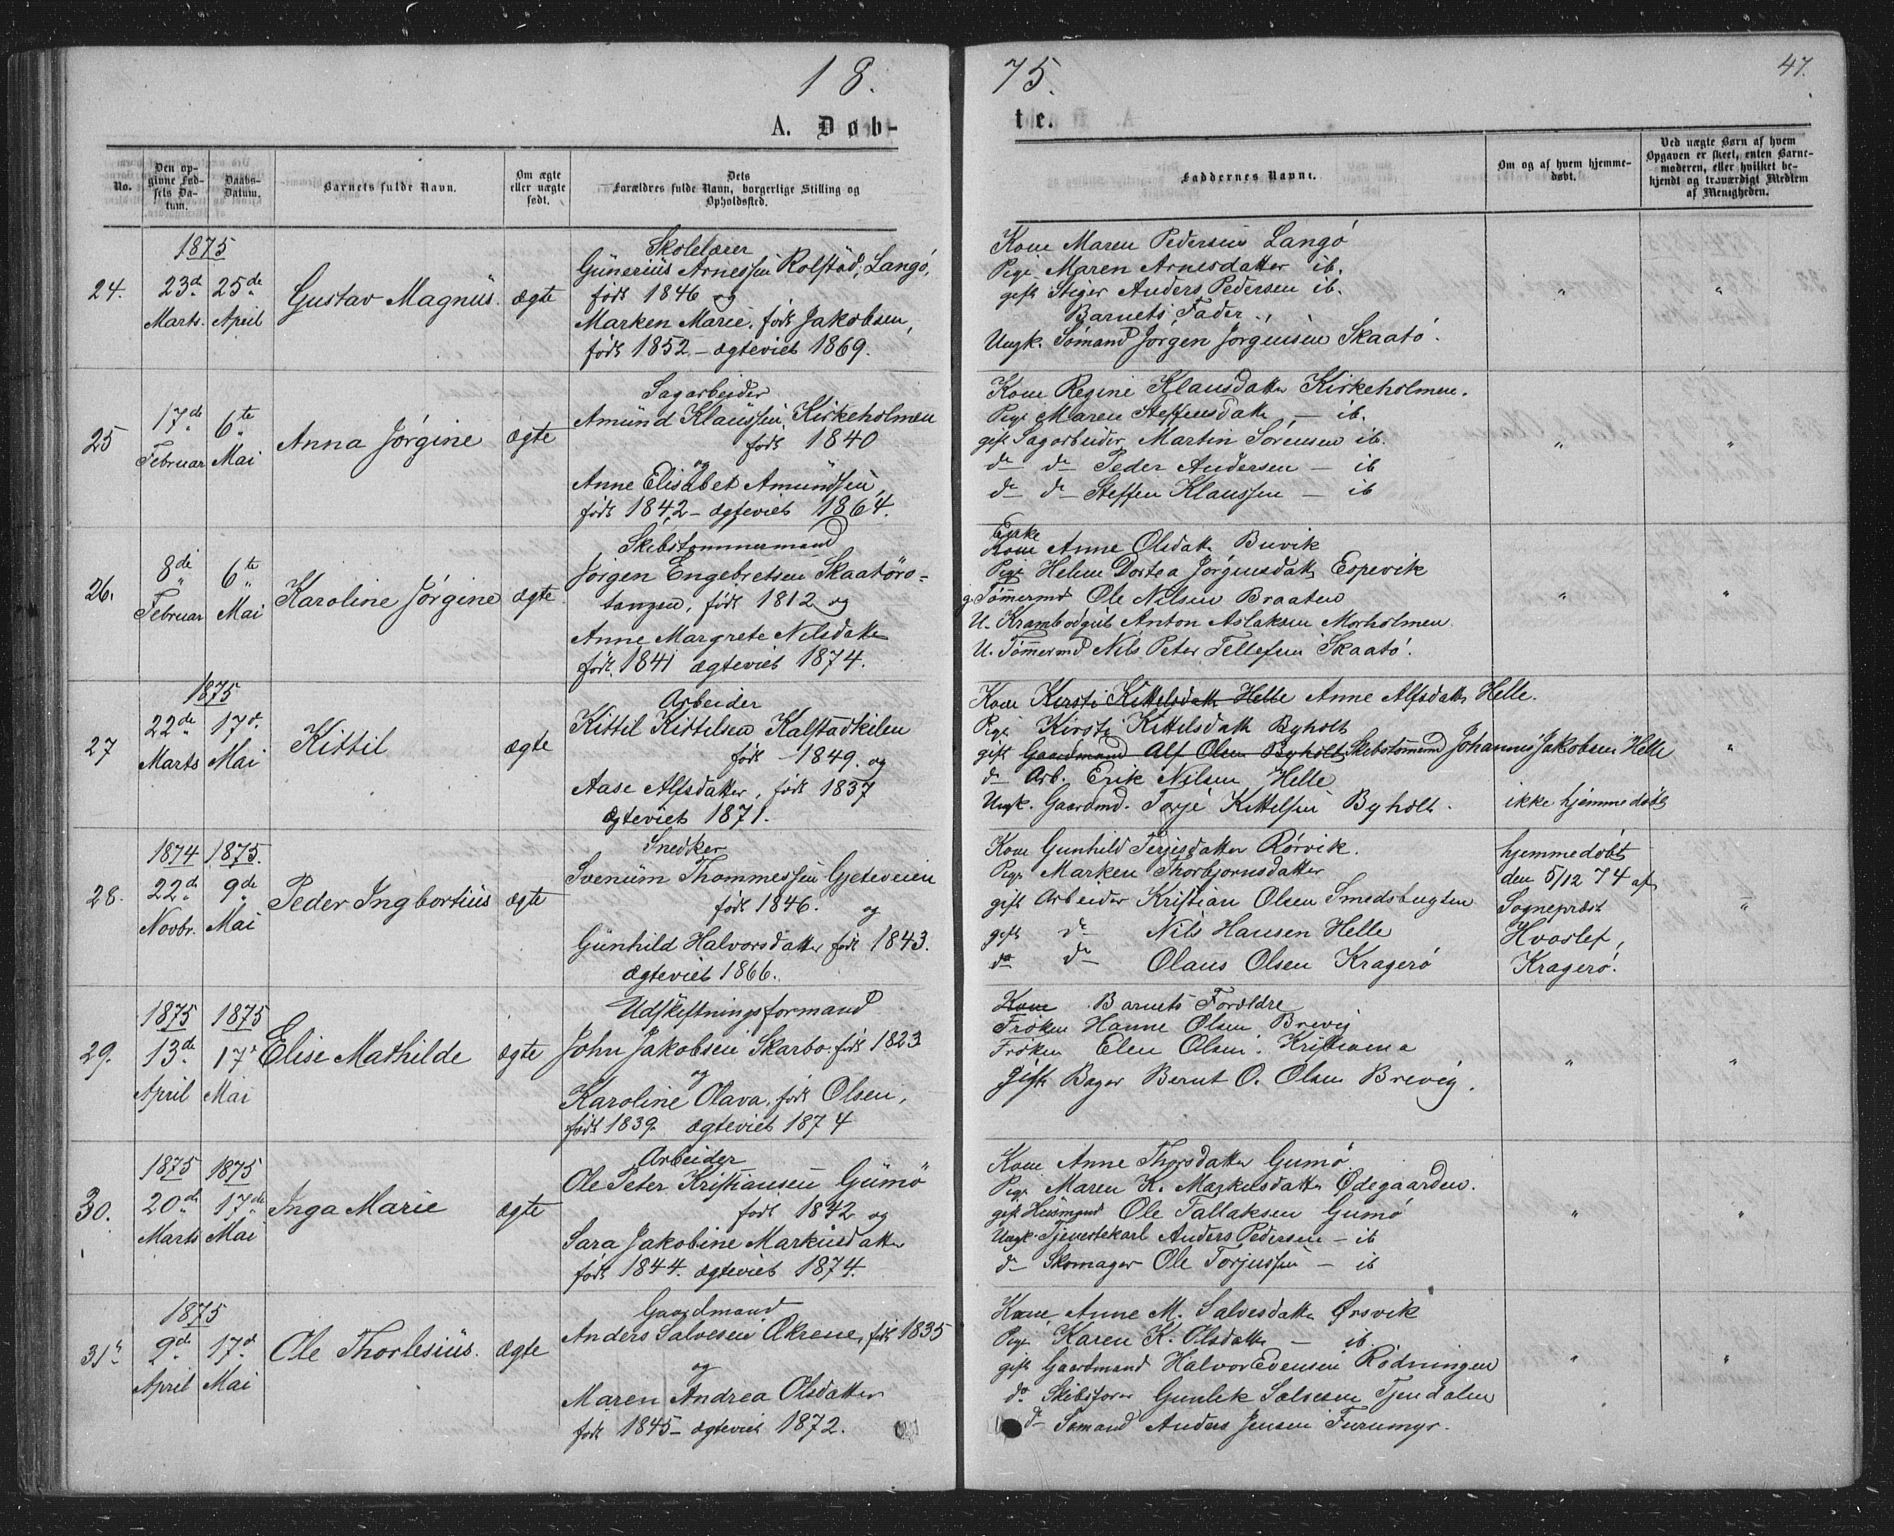 18 75.
47.
A. Døb- te.
No.
Den op-
givne Fød-
sels Da-
tum.
Daabs-
Datum.
Barnets fulde Navn.
Om ægte
eller uægte
født.
Dets
Forældres fulde Navn, borgerlige Stilling og
Opholdssted.
Faddernes Navne.
Om og af hvem hjemme-
døbt.
Ved uægte Børn af hvem
Opgaven er skeet, enten Barne-
moderen, eller hvilket be-
kjendt og troværdigt Medlem
af Menigheden.
24.
1875
23de
Marts.
25de
April
Gustav Magnus.
ægte
Skolelærer
Gunerius Arnessen Rolstad, Langø,
født 1846 og
Marken Marie, født Jakobsen,
født 1852 – ægteviet 1869.
Kone Maren Pedersen Langø
Pige Maren Arnesdatter ib.
gift Stiger Anders Pedersen ib.
Barnets Fader.
Ungk. Sømand Jørgen Jørgensen Skaatø.
"
"
25
17de
Februar
6te
Mai
Anna Jørgine
ægte
Sagarbeider
Amund Klaussen, Kirkeholmen
født 1840
og
Anne Elisabet Amundsen,
født 1842 – ægteviet 1864.
Kone Regine Klausdatter Kirkeholmen.
Pige Maren Steffensdatt – ib.
gift Sagarbeider Martin Sørensen ib.
do do Peder Andersen – ib
do do Steffen Klaussen – ib
"
"
26.
8de
"
Februar
6te
"
Mai
Karoline Jørgine
ægte
Skibstømmermand
Jørgen Engebretsen Skaatørø-
tangen, født 1812 og
Anne Margrete Nilsdatte
født 1841 ægteviet 1874.
Enke
Kone Anne Olsdatt Buvik
Pige Helene Dortea Jørgensdatt Espevik
g. Tømmermd Ole Nilsen Braaten
U. Krambodgut Anton Aslaksen Morholmen.
U. Tømmermd Nils Peter Tellefsen Skaatø.
"
"
27
1875
22de
Marts
17d.
Mai
Kittil
ægte
Arbeider
Kittil Kittilsen Kalstadkilen
født 1849. og
Aase Alfsdatter, født 1837
ægteviet 1871.
Kone Kirsti Kittelsdatt Helle Anne Alfsdatt Helle.
Pige Kirsti Kittelsdatt Byholt
gift Gaardmand Alf Olsen Byholt Skibstømmd Johannes Jakobsen Helle
do Arb. Erik Nilsen Helle
Ungk. Gaardmd. Torje Kittelsen Byholt.
ikke hjemmedøbt
"
28.
1874
22de
Novbr.
1875.
9de
Mai
Peder Ingbortius
ægte
Snedker
Svenum Thommessen Gjeteveien
født 1846. og
Gunhild Halvorsdatter født 1843.
ægteviet 1866.
Kone Gunhild Terjesdatter Rørvik.
Pige Marken Thorbjornsdatter
gift Arbeider Kristian Olsen Smedsbugten
gift do Nils Hansen Helle
do do Olaus Olsen Kragerø
hjemmedøbt
den 5/12 74 af
Sognepræst
Hvoslef,
Kragerø.
"
29.
1875
13de
April
1875
17d
Mai
Elise Mathilde
ægte
Udskiftningsformand
John Jakobsen Skarbo. født 1823
og
Karoline Olava, født Olsen,
født 1839. ægteviet 1874
Kone Barnets Forældre
Frøken Hanne Olsen Brevig
Frøken Elen Olsen. Kristiania
Gift Bager Bernt O. Olsen Brevig.
"
"
30.
1875
20de
Marts
1875
17de
Mai
Inga Marie
ægte
Arbeider
Ole Peter Kristiansen Gumø
født 1842 og
Sara Jakobine Markusdatter
født 1844. ægteviet 1874.
Kone Anne Thorsdatter Gumø
Pige Maren K. Markusdatt Ødegaarden.
gift Husmand Ole Tallaksen Gumø
Ungk. Tjenestekarl Anders Pedersen – ib
do Skomager Ole Torjussen – ib
"
"
31
1875
9de
April
17d
Mai
Ole Thorlesius.
ægte
Gaardmand
Anders Salvesen Økrene, født 1835
og
Maren Andrea Olsdatter
født 1845 – ægteviet 1872.
Kone Anne M. Salvesdatt Ørsvik
Pige Karen K. Olsdatt – ib.
gift Gaardmand Halvor Evensen Rødningen
do Skibsfører Gunlek Salvesen Tjendalen
do Sømand Anders Jensen Furumyr.
"
"